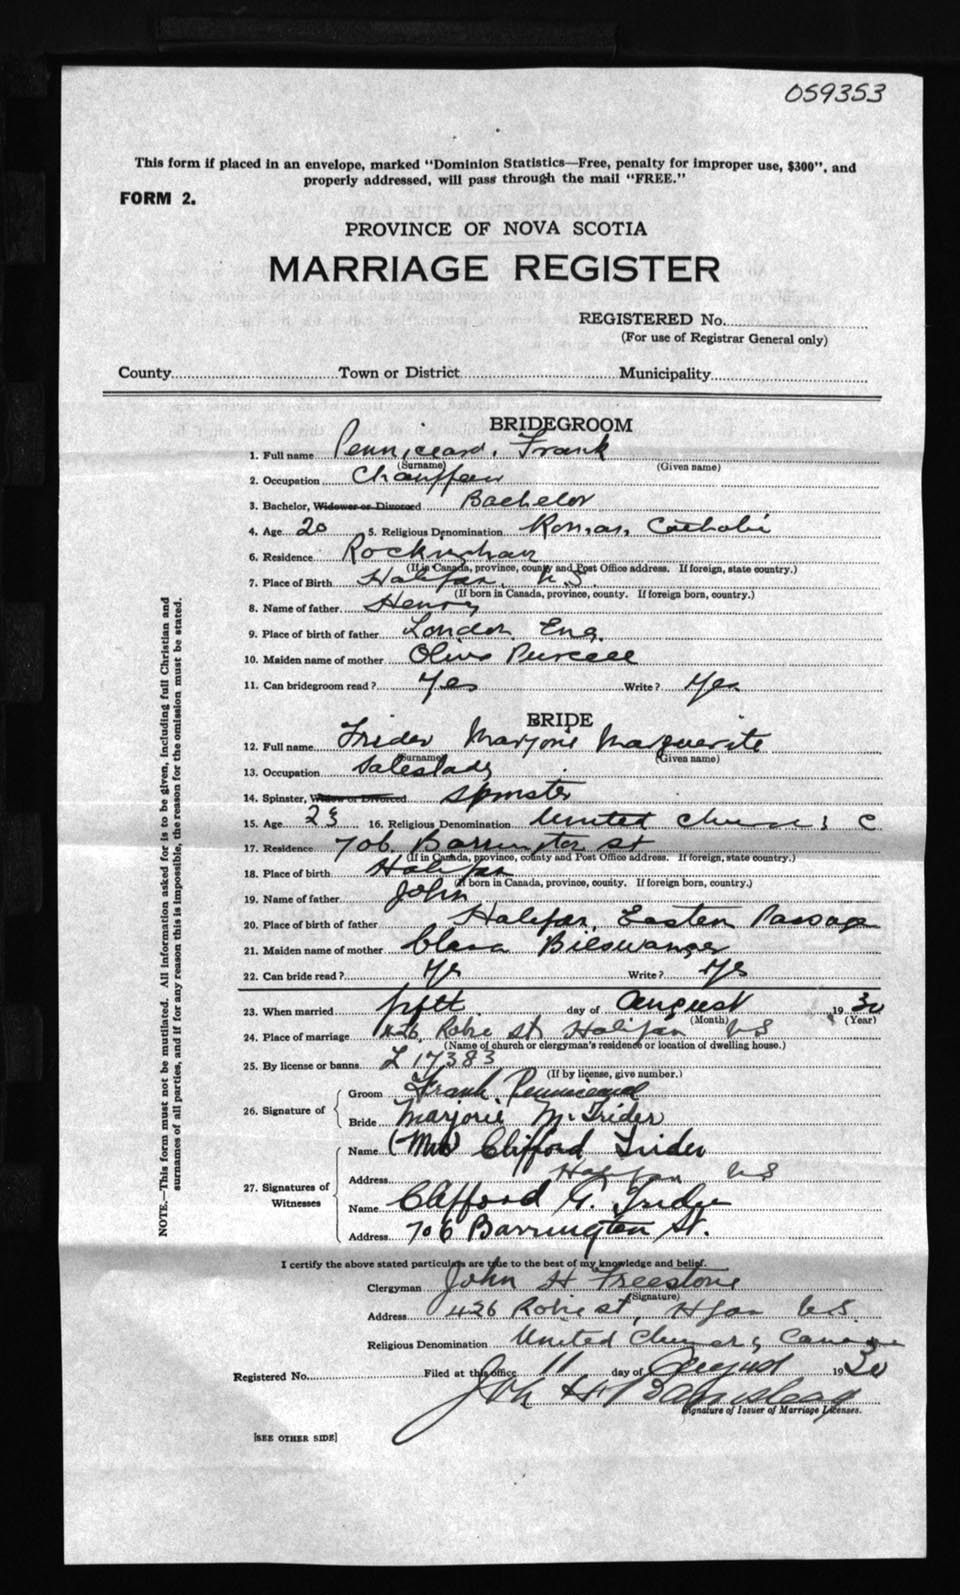 059353
This form if placed in an envelope, marked "Dominion Statistics—Free, penalty for improper use, $300", and
properly addressed, will pass through the mail "FREE."
FORM 2.
PROVINCE OF NOVA SCOTIA
MARRIAGE REGISTER
REGISTERED No.
(For use of Registrar General only)
County Town or District Municipality
BRIDEGROOM
1. Full name Penniceard, Frank
(Surname) (Given name)
2. Occupation Chauffeur
3. Bachelor, Widower or Divorced Bachelor
4. Age 20 5. Religious Denomination Roman Catholic
6. Residence Rockingham
(If in Canada, province, county and Post Office address. If foreign, state country.)
7. Place of Birth Halifax, N.S.
(If born in Canada, province, county. If foreign born, country.)
8. Name of father Henry
9. Place of birth of father London Eng.
10. Maiden name of mother Olive Purcell
11. Can bridegroom read? Yes Write? Yes
BRIDE
12. Full name Trider Marjorie Marguerite
(Surname) (Given name)
13. Occupation Saleslady
14. Spinster, Widow or Divorced Spinster
15. Age 23 16. Religious Denomination United Church C
17. Residence 706 Barrington St
(If in Canada, province, county and Post Office address. If foreign, state country.)
18. Place of birth Halifax
(If born in Canada, province, county. If foreign born, country.)
19. Name of father John
20. Place of birth of father Halifax, Eastern Passage
21. Maiden name of mother Clara Bieswanger
22. Can bride read? Yes Write? Yes
23. When married fifth day of August 1930
(Month) (Year)
24. Place of marriage 426 Robie St Halifax NS
(Name of church or clergyman's residence or location of dwelling house.)
25. By license or banns L 17383
(If by license, give number.)
26. Signature of
Groom Frank Penniceard
Bride Marjorie M. Trider
27. Signatures of Witnesses
Name (Mrs) Clifford Trider
Address Halifax NS
Name Clifford G. Trider
Address 706 Barrington St.
I certify the above stated particulars are true to the best of my knowledge and belief.
Clergyman John H Freestone
(Signature)
Address 426 Robie St, Hfax N.S.
Religious Denomination United Church of Canada
Registered No. Filed at this office 11 day of August 1930
Signature of Issuer of Marriage Licenses.
[SEE OTHER SIDE]
NOTE.—This form must not be mutilated. All information asked for is to be given, including full Christian and
surnames of all parties, and if for any reason this is impossible, the reason for the omission must be stated.